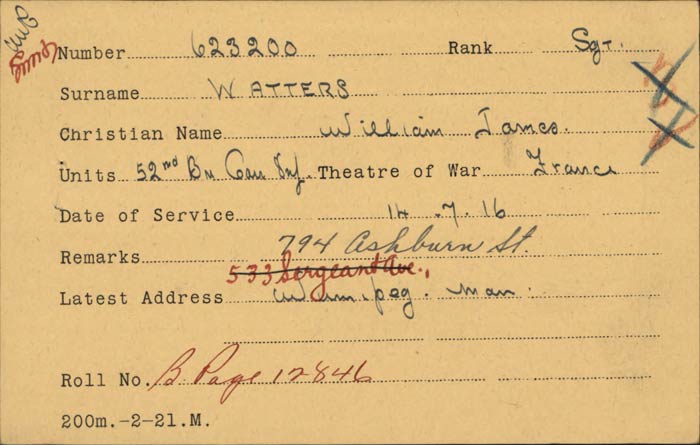 Number 623200 Rank Sgt.
Surname WATTERS
Christian Name William James.
Units 52nd Bn Can Inf. Theatre of War France
Date of Service 14.7.16
Remarks 794 Ashburn St.
533 Sergeant Ave.,
Latest Address Winnipeg. Man.
Roll No. B Page 12846
200m.-2-21.M.